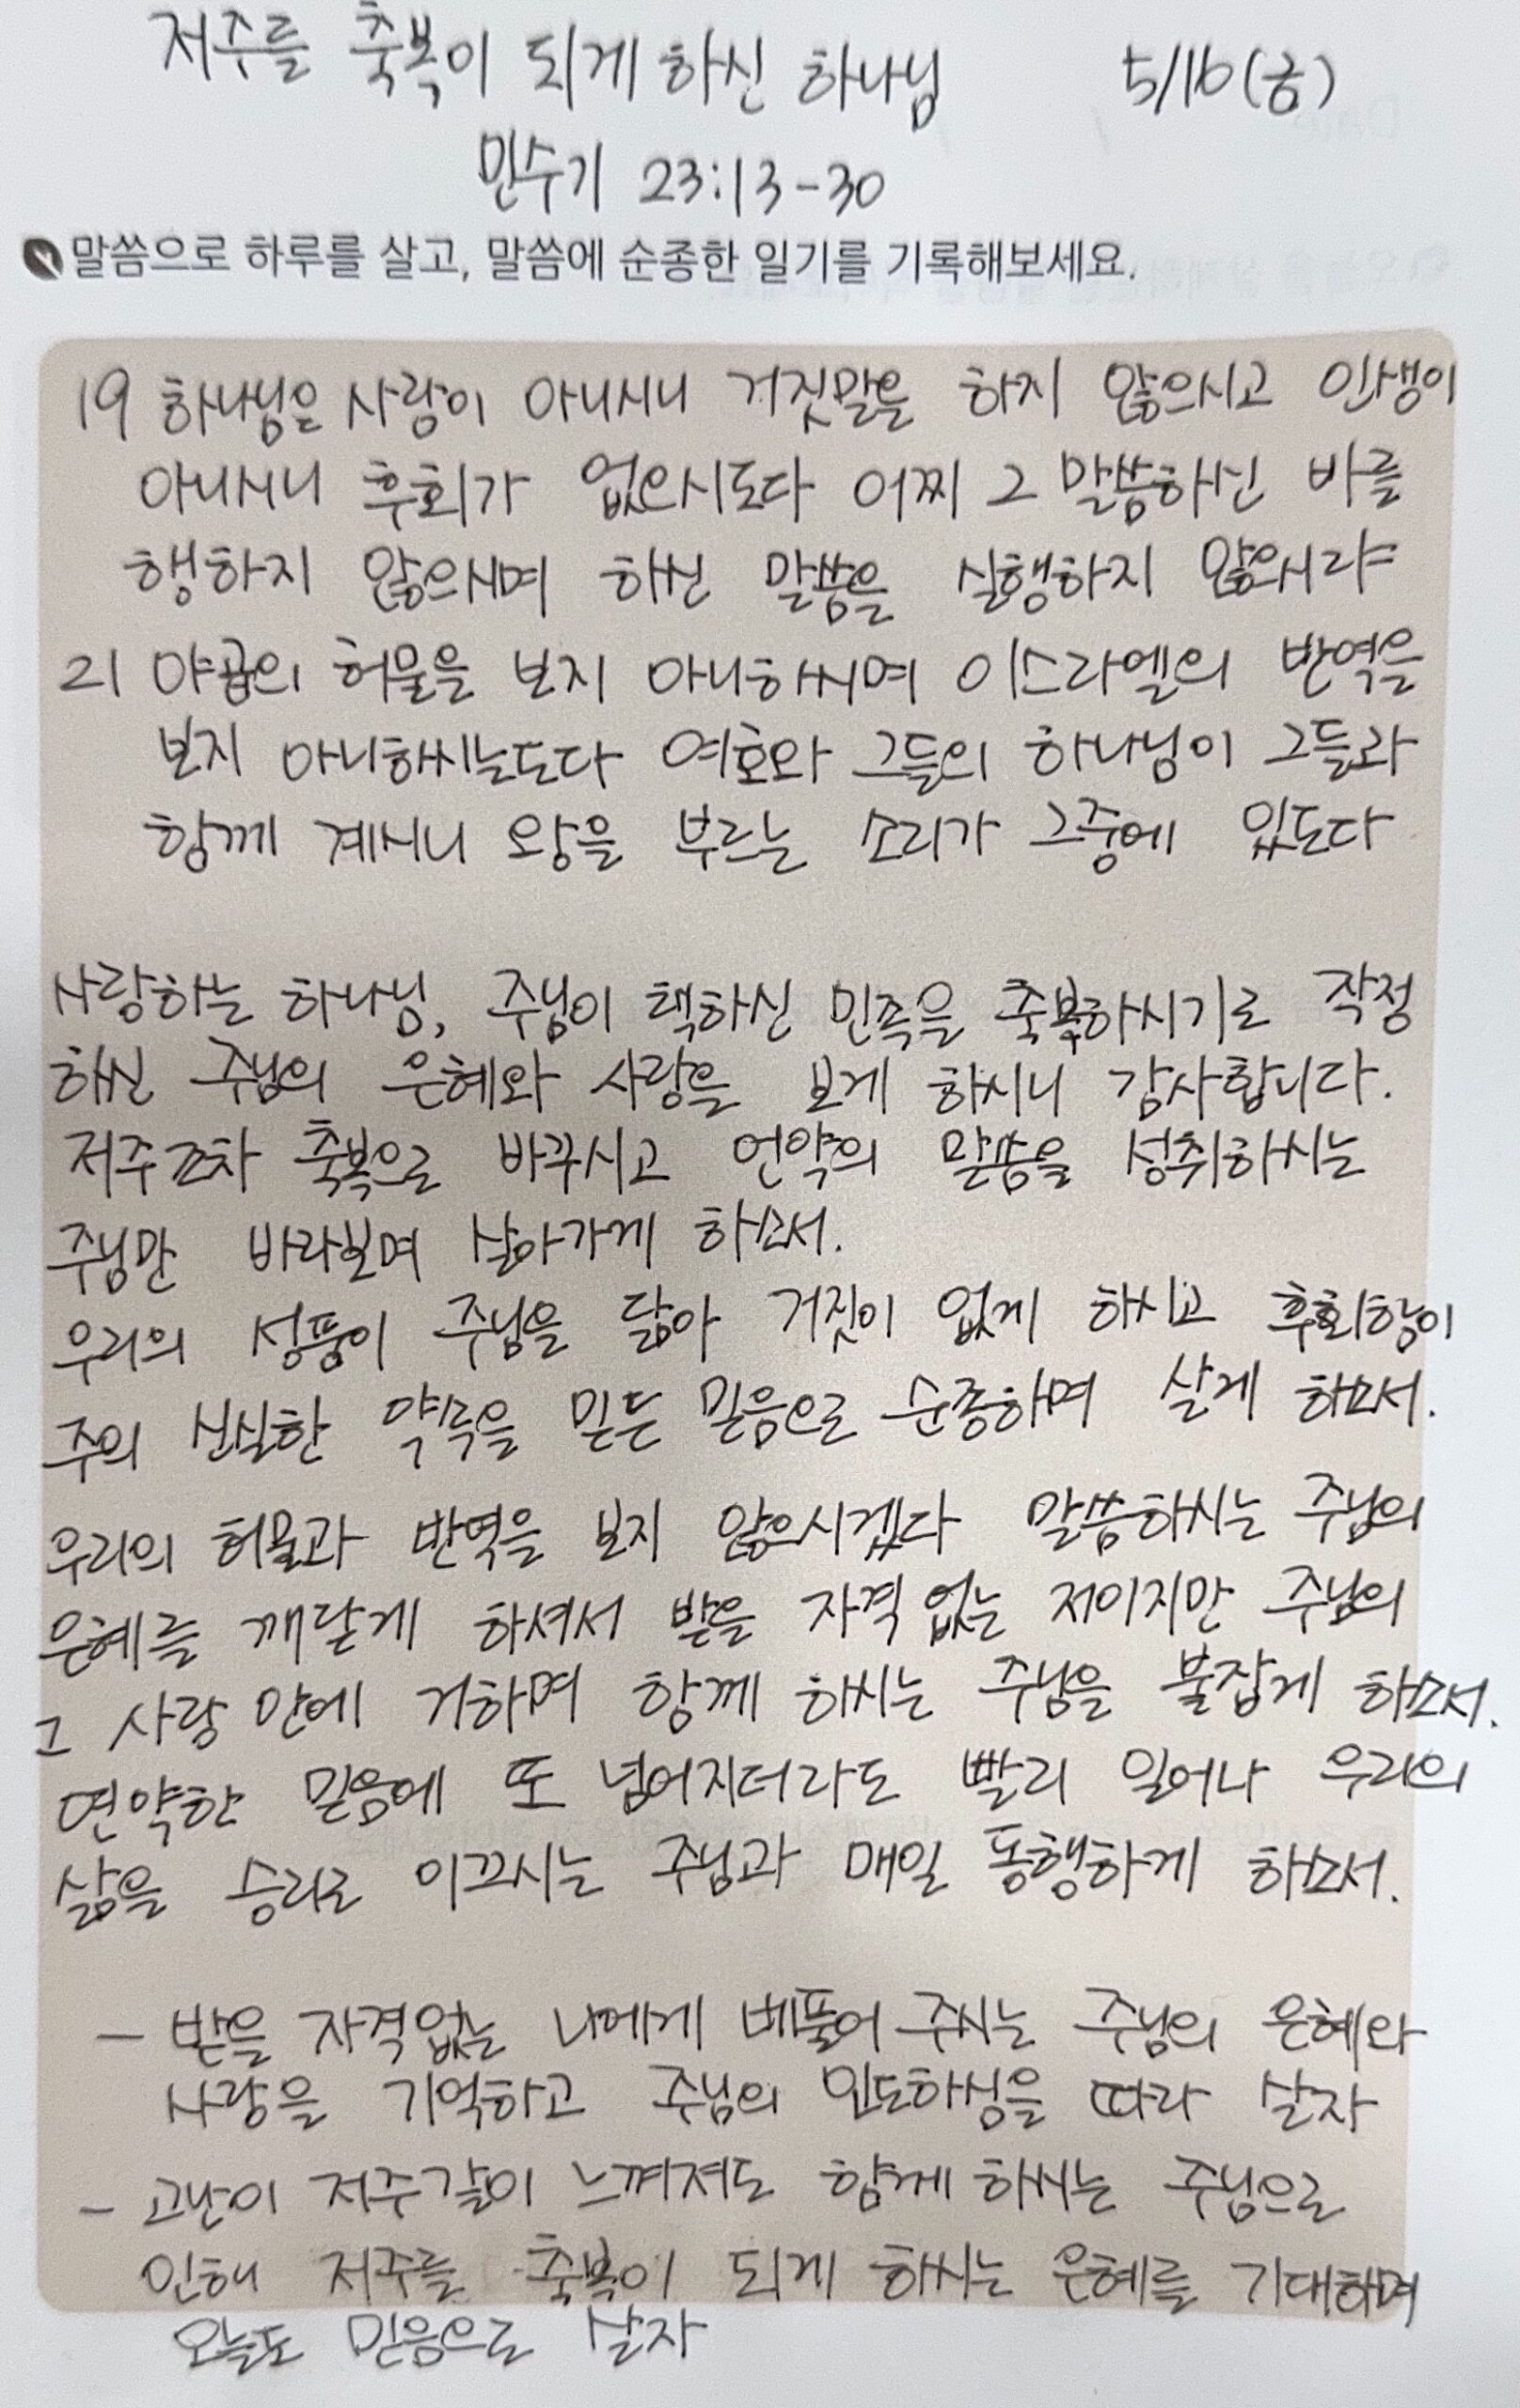 저주를 축복이 되게 하신 하나님 5/16(금)
민수기 23:13-30
말씀으로 하루를 살고, 말씀에 순종한 일기를 기록해보세요.
19 하나님은 사람이 아니시니 거짓말을 하지 않으시고 인생이
아니시니 후회가 없으시도다 어찌 그 말씀하신 바를
행하지 않으시며 하신 말씀을 실행하지 않으시랴
21 야곱의 허물을 보지 아니하시며 이스라엘의 반역을
보지 아니하시는도다 여호와 그들의 하나님이 그들과
함께 계시니 왕을 부르는 소리가 그중에 있도다
사랑하는 하나님, 주님이 택하신 민족을 축복하시기로 작정
하신 주님의 은혜와 사랑을 보게 하시니 감사합니다.
저주조차 축복으로 바꾸시고 언약의 말씀을 성취하시는
주님만 바라보며 살아가게 하소서.
우리의 성품이 주님을 닮아 거짓이 없게 하시고 후회함이
주의 신실한 약속을 믿는 믿음으로 순종하며 살게 하소서.
우리의 허물과 반역을 보지 않으시겠다 말씀하시는 주님의
은혜를 깨닫게 하셔서 받을 자격 없는 저이지만 주님의
그 사랑 안에 거하며 함께 하시는 주님을 붙잡게 하소서.
연약한 믿음에 또 넘어지더라도 빨리 일어나 우리의
삶을 승리로 이끄시는 주님과 매일 동행하게 하소서.
- 받을 자격없는 나에게 베풀어 주시는 주님의 은혜와
사랑을 기억하고 주님의 인도하심을 따라 살자
- 고난이 저주같이 느껴져도 함께 하시는 주님으로
인해 저주를 축복이 되게 하시는 은혜를 기대하며
오늘도 믿음으로 살자